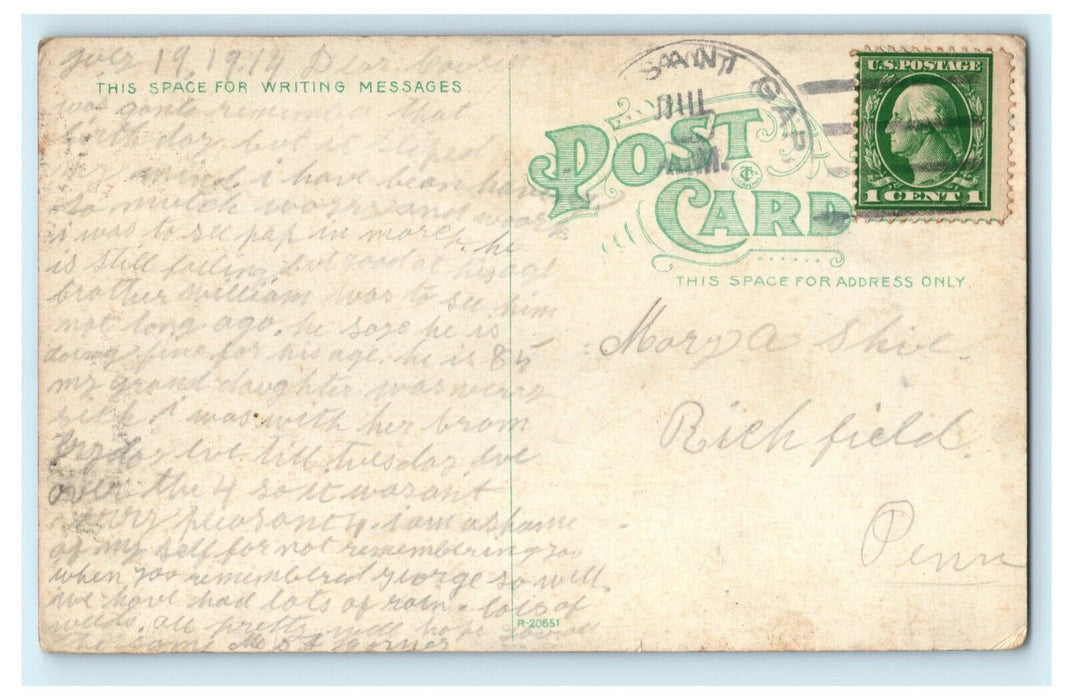 19, 1914 Dear
THIS SPACE FOR WRITING MESSAGES.
was gont remember that
birth day but it sliped
my mind i have bean
so mutch worry and work
i was to see pap in more, he
is still failing but good at his age
brother william was to see him
not long ago. he says he is
doing fine for his age. he is 85
my grand daughter was verry
sick i was with her from
fryday eve till tuesday eve
over the 4 so it wasant
verry pleasant 4. i am ashame
of my self for not remembering you
when you remembered george so well.
we have had lots of rain. lots of
welds. all pretty well hope you all
the same
R-20651
SANT GAP
A.M.
U.S. POSTAGE
1 CENT 1
POST CARD
THIS SPACE FOR ADDRESS ONLY.
Mary A Shive.
Richfield.
Penn